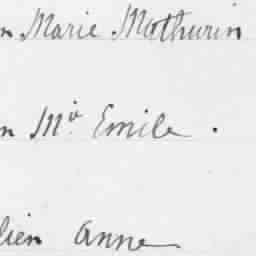 n Marie Mathurin
n Mie Emile .
lien Anne